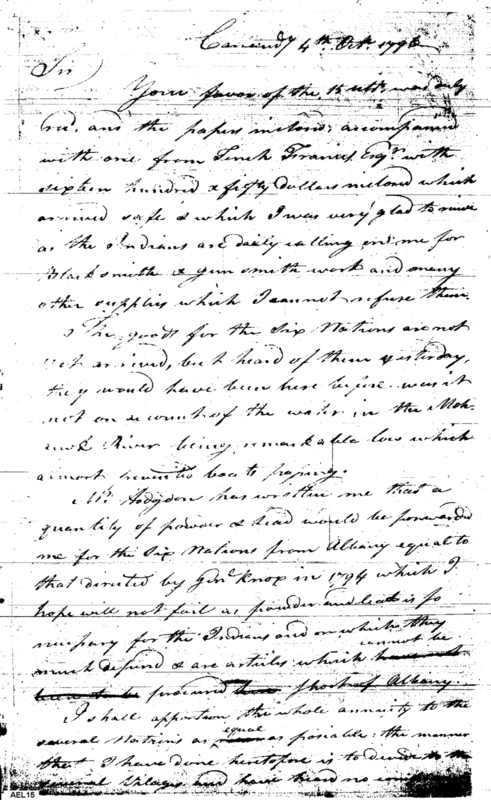 Canand^y 4th Oct^r 1796
Sir
Your favor of the 15 ult^o was duly
rec^d. and the papers inclosd; accompanied
with one from Tench Francis Esq^r. with
sixteen hundred & fifty dollars inclosd which
arrived safe & which I was very glad to
as the Indians are daily calling on me for
Blacksmith & gun smith work and many
other supplies which I cannot refuse them.
The goods for the Six Nations are not
yet arrived, but heard of them yesterday,
they would have been here before was it
not on account of the water in the Moh-
awk River being remarkable low which
almost prevented boats passing.
Mr. Hodgdon has written me that a
quantity of powder & lead would be forwarded
me for the Six Nations from Albany equal to
that directed by Gen^l Knox in 1794 which I
hope will not fail as powder and lead is so
necessary for the Indians and on which they
much depend & are articles which cannot be
procured short of Albany.
I shall apportion the whole annuity to the
several Nations as equal as possiable: the manner
that I have done heretofore is to divide to the
several Villages and have heard no
AEL15